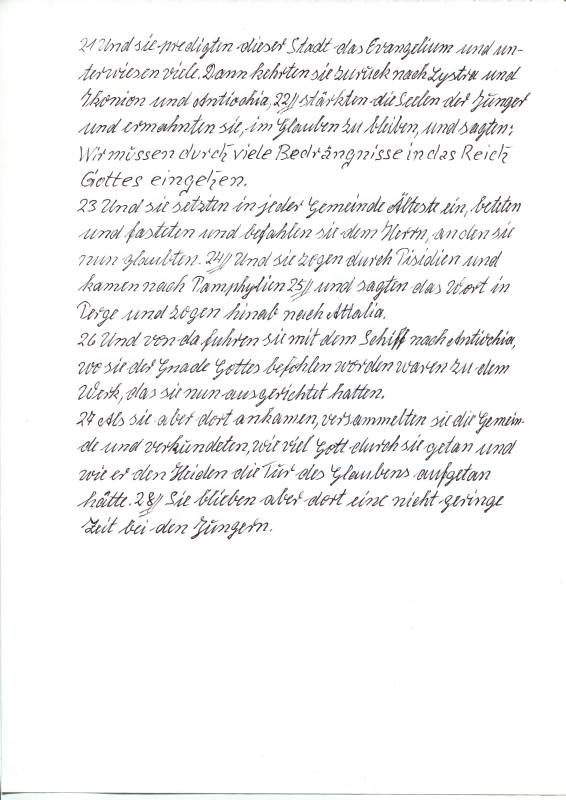 21 Und sie predigten dieser Stadt das Evangelium und un-
terwiesen viele. Dann kehrten sie zurück nach Lystra und
Ikonion und Antiochia, 22// stärkten die Seelen der Jünger
und ermahnten sie, im Glauben zu bleiben, und sagten:
Wir müssen durch viele Bedrängnisse in das Reich
Gottes eingehen.
23 Und sie setzten in jeder Gemeinde Älteste ein, beteten
und fasteten und befahlen sie dem Herrn, an den sie
nun glaubten. 24// Und sie zogen durch Pisidien und
kamen nach Pamphylien 25// und sagten das Wort in
Perge und zogen hinab nach Attalia.
26 Und von da fuhren sie mit dem Schiff nach Antiochia,
wo sie der Gnade Gottes befohlen worden waren zu dem
Werk, das sie nun ausgerichtet hatten.
27 Als sie aber dort ankamen, versammelten sie die Gemein-
de und verkündeten, wie viel Gott durch sie getan und
wie er den Heiden die Tür des Glaubens aufgetan
hätte. 28// Sie blieben aber dort eine nicht geringe
Zeit bei den Jüngern.